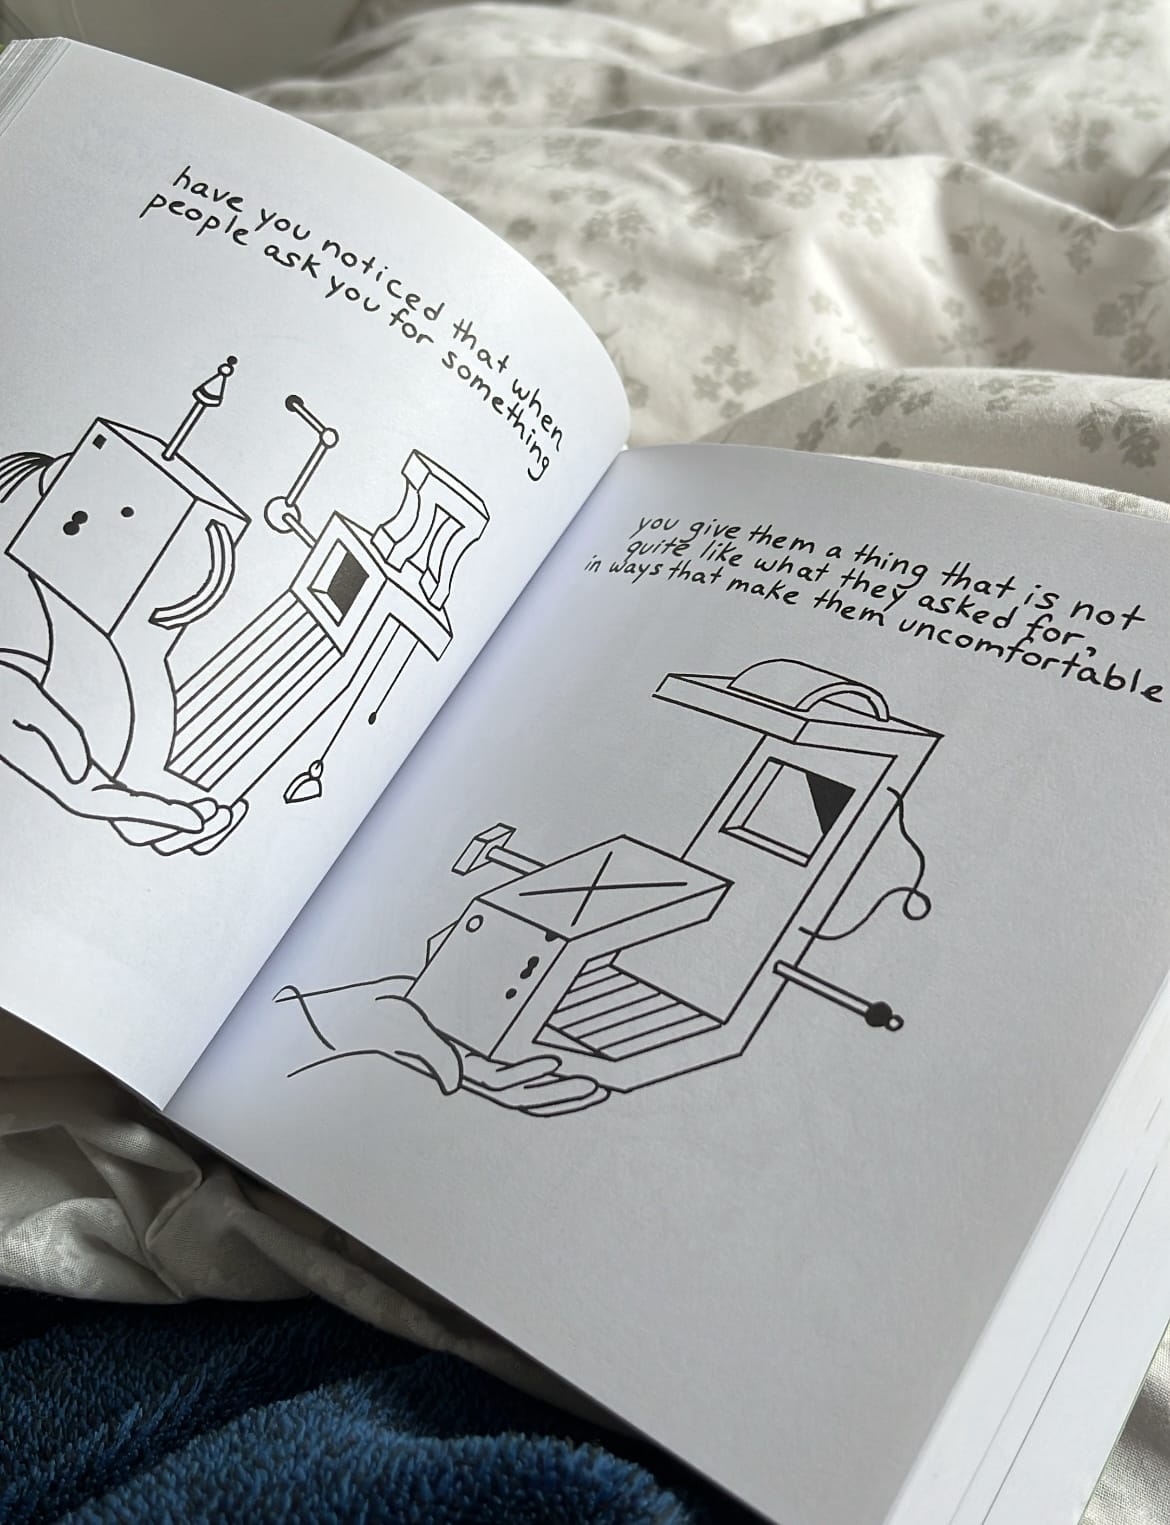 have you noticed that when
people ask you for something
you give them a thing that is not
quite like what they asked for,
in ways that make them uncomfortable